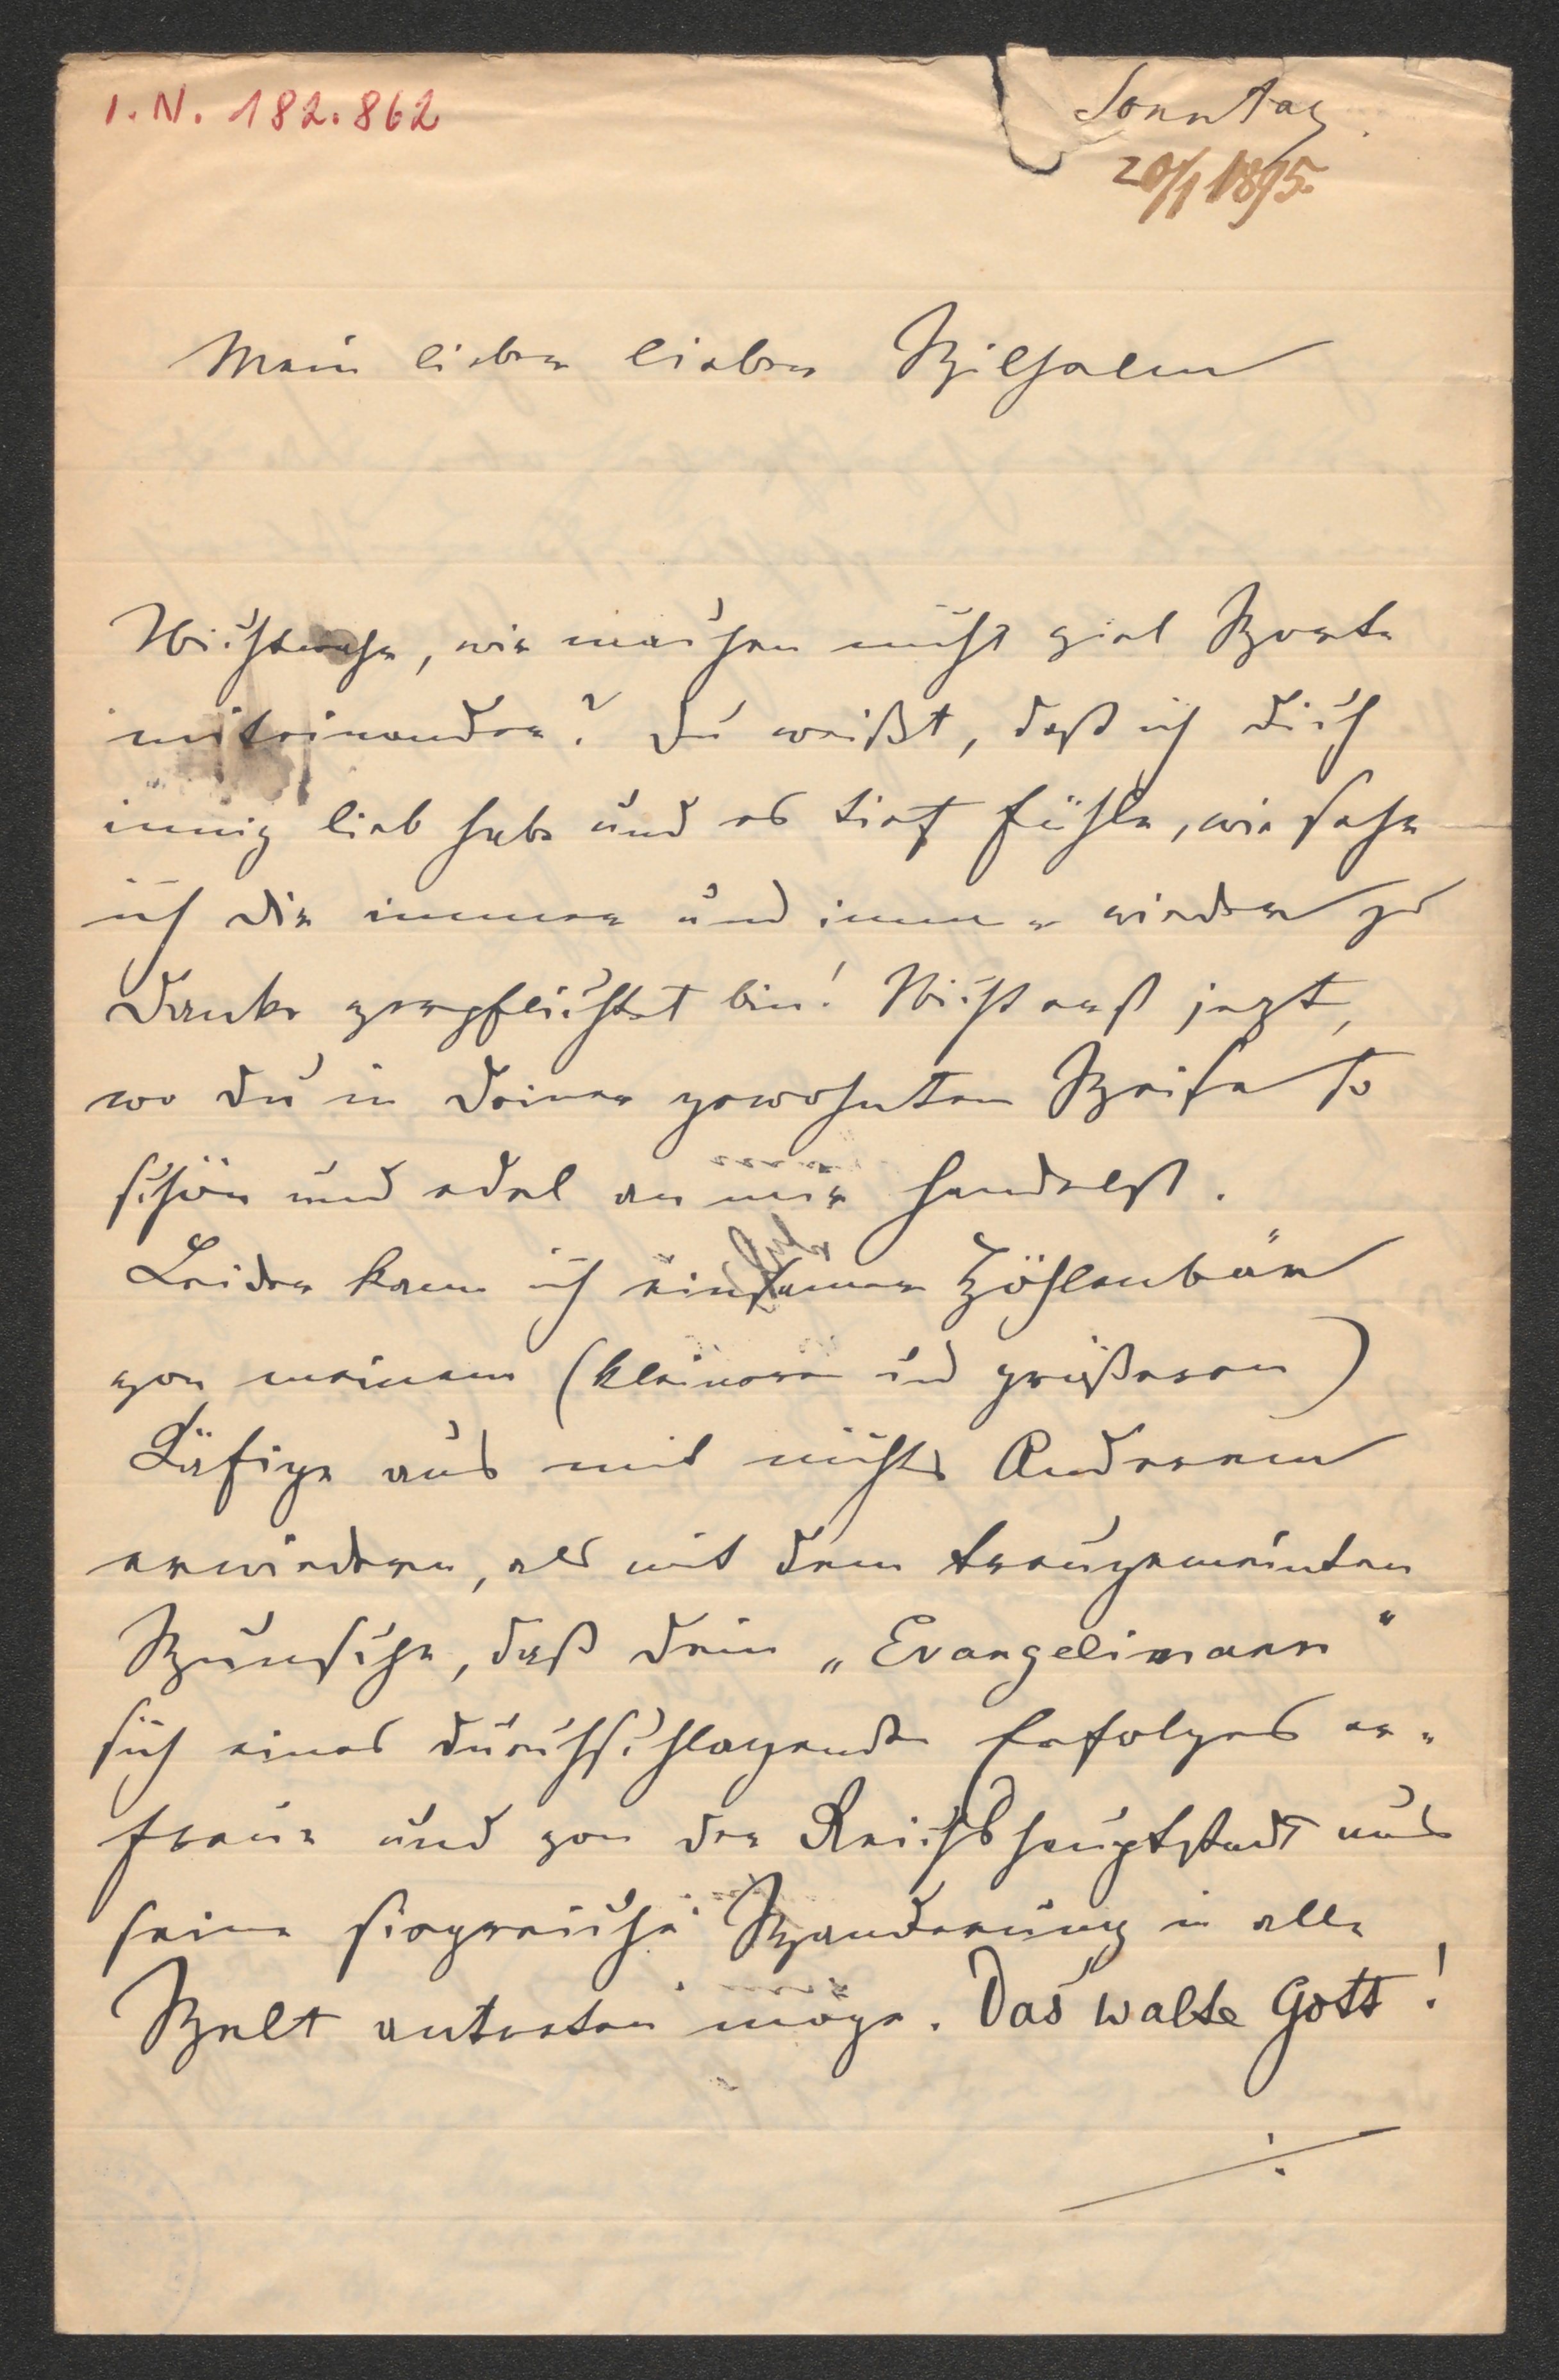 I. N. 182.862
Sonntag
20/1 1895.
Mein lieber lieber Wilhelm
Nichtwahr, wir machen nicht viel Worte
miteinander? Du weißt, daß ich Dich
innig lieb habe und es tief fühle, wie sehr
ich Dir immer und immer wieder zu
Danke verpflichtet bin! Nicht erst jezt,
wo Du in Deiner gewohnten Weise so
schön und edel an mir handelst.
Leider kann ich einsamer Höhlenbär
von meinem (kleineren und größeren)
Käfige aus mit nichts Anderem
erwiedern, als mit dem treugemeinten
Wunsche, daß Dein „Evangelimann“
sich eines durchschlagenden Erfolges er-
freue und von der Reichshauptstadt aus
seine siegreiche Wanderung in alle
Welt antreten möge. Das walte Gott!